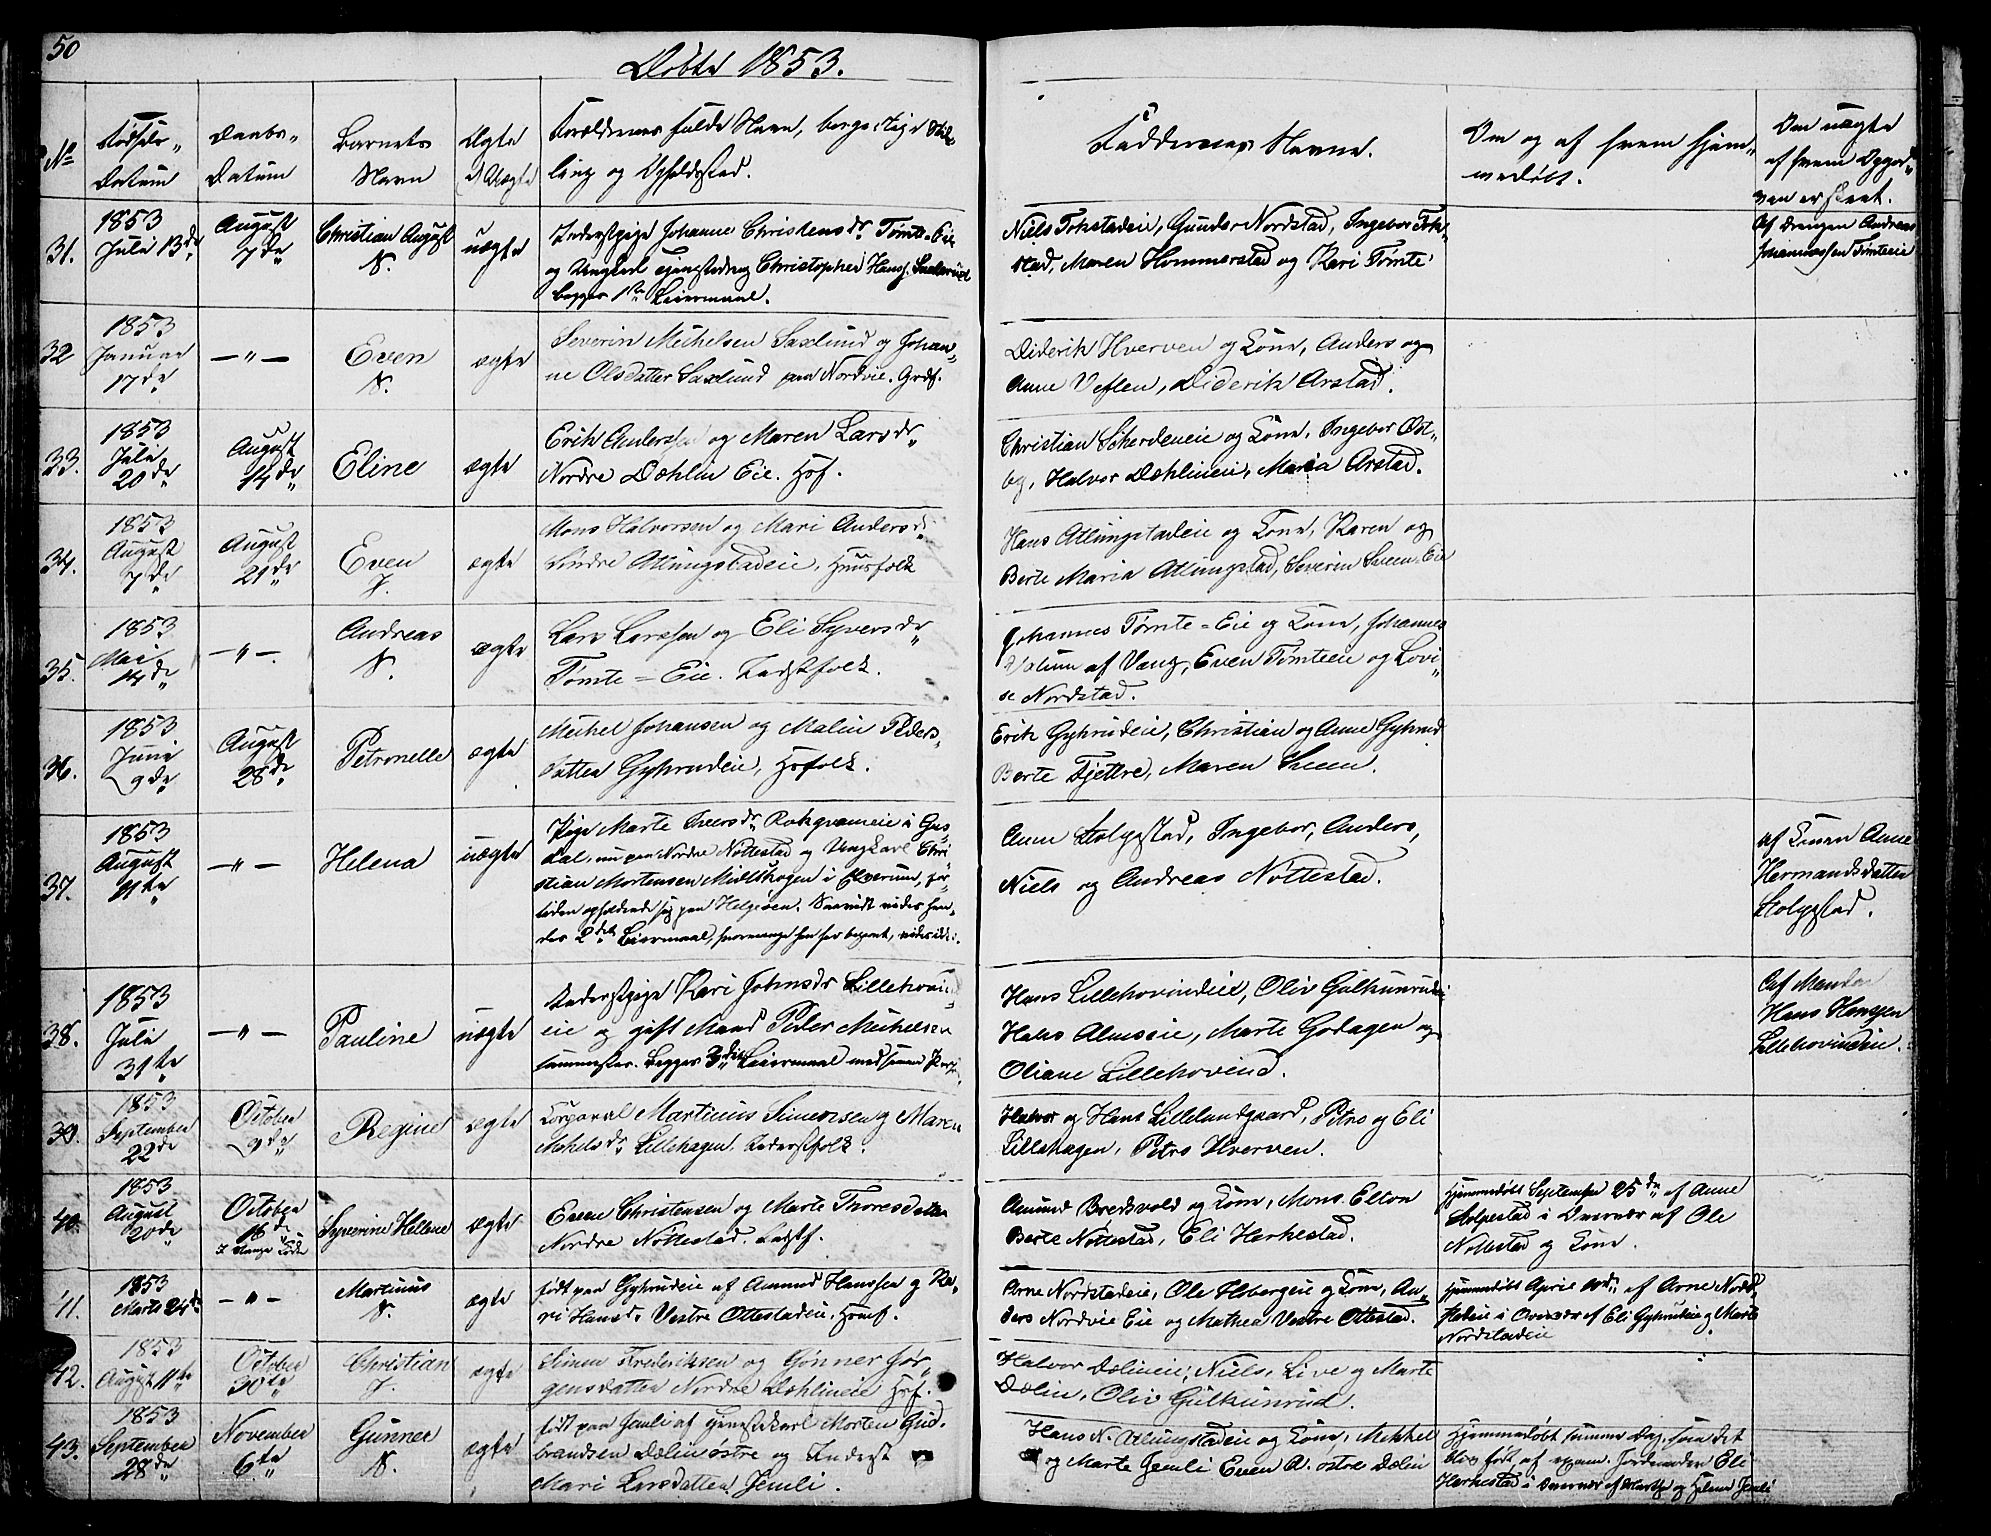 50
Døbte 1853.
No
Fødsels-
Datum
Daabs-
Datum
Barnets
Navn
Ægte
Uægte
Forældrenes fulde Navn, borgerlig Stil-
ling og Opholdssted.
Faddernes Navne.
Om og af hvem hjem-
medøbt.
Om uægte
af hvem Opgiv-
ven er skeet.
31.
1853
Juli 13de
August
7de
Christian August
N.
uægte
Inderstpige Johanne Christensdr. Tømte-Eie
og Ungkarl Christopher Hans.
begges 1ste Leiermaal.
Niels Tokstadeie, Gunder Nordstad, Ingebor Tok-
stad, Maren Hommerstad og Kari Tømte
Af drengen Andreas
Johannessen Tømteeie
32
1853
Januar
17de
— " —
Even
N.
ægte
Severin Michelsen Saxlund og Johan-
ne Olsdatter Saxlund paa Nordvie. Grdf.
Diderik Hverven og Kone, Anders og
Anne Veflen, Diderik Arstad.
33.
1853
Juli
20de
August
14de
Eline
ægte
Erik Anderssen og Maren Larsdr.
Nordre Dæhlin Eie. Hsf.
Christian Skierdeneie og Kone, Ingebor Ost-
by, Halvor Dæhlineie, Maria Arstad.
34.
1853
August
7de
August
21de
Even
J.
ægte
Mons Halvorsen og Mari Andersdr.
Søndre Atlungstadeie, Huusfolk
Hans Atlungstadeie og Kone, Karen og
Berte Maria Atlungstad, Severin Sveen-Eie
35.
1853
Mai
14de
— " —
Andreas
N.
ægte
Lars Larssen og Eli Syversdr.
Tømte-Eie. Indstfolk.
Johannes Tømte-Eie og Kone, Johannes
Valum af Vang, Even Tømteeie og Lovi-
se Nordstad.
36.
1853
Juni
9de
August
28de
Petronelle
ægte
Michel Johansen og Malin Peders-
datter Gyhrudeie, Hsfolk.
Erik Gyhrudeie, Christian og Anne Gyhrud
Berte Fjettre, Maren Sveen.
37.
1853
August
11te
— " —
Helena
uægte
Pige Marte Iversdr. i Gus-
dal, nu paa Nordre Nøttestad og Ungkarl Chri-
stian Mortensen Midtskogen i Elverum, for
tiden opholdende sig paa Helgesen. Saavidt vides hen-
des 2det Leiermaal, hvormange han har begaaet, vides ikke.
Anne Stolpestad, Ingebor, Anders,
Niels og Andreas Nøttestad.
af Konen Anne
Hermandsdatter
Stolpestad.
38.
1853
Juli
31te
— " —
Pauline
uægte
Inderstpige Kari Johnsdr Lillehovind-
eie og gift Mand Peder Michelsen
sammesteds. Begges 3die Leiermaal med samme Person.
Hans Lillehovindeie, Oliv Gulkunrudeie
Hans Almseie, Marte Godagen og
Oliane Lillehovind.
Af Manden
Hans Hanssen
Lillehovindeie.
39.
1853
September
22de
October
9de
Regine
ægte
Corporal Martinus Simensen og Maren
Mikelsdr. Lillehagen. Inderstfolk.
Halvor og Hans Lillelundgaard, Petro og Eli
Lillehagen, Petro Hverven.
40.
1853
August
20de
October
16de
Syverine Hellene
ægte
Even Christensen og Marte Thoresdatter
Nordre Nøttestad. Indstf.
Amund Bredvold og Kone, Mons Elton
Berte Nøttestad, Eli Herkestad.
Hjemmedøbt September 25de af Anne
Stolpestad i Overvær af Ole
Nøttestad og Kone.
41.
1853
Marts 24de
— " —
Martinus
N.
ægte
født paa Gyhrudeie af Amund Hanssen og Ka-
ri Hansdr. Vestre Ottestadeie. Hsmf.
Arne Nordstadeie, Ole Hobergeie og Kone, An-
ders Nordvie Eie og Mathea Vestre Ottestad.
Hjemmedøbt April af Arne Nord-
stadeie i Overvær af Eli Gyhrudeie og Marte
Nordstadeie
42.
1853
August 11te
October
30te
Christian
J.
ægte
Simen Frederiksen og Gønner Jør-
gensdatter Nordre Dæhlineie Hsf.
Halvor Dælineie, Niels, Live og Marte
Dælin, Oliv Gulkunrud.
43.
1853
September
28de
November
6te
Gunner
N.
ægte
født paa Jemli af Tjenestekarl Morten Gud-
brandsen Dælin østre og Inderst
Mari Larsdatter Jemli.
Hans N. Atlungstadeie og Kone, Mikkel
og Marte Jemli Even A. østre Dælin
Hjemmedøbt samme Dag, som det
blev født, af exam. Jordemoder Eli
Herkestad i Overvær af Marthe og Helene Jemli